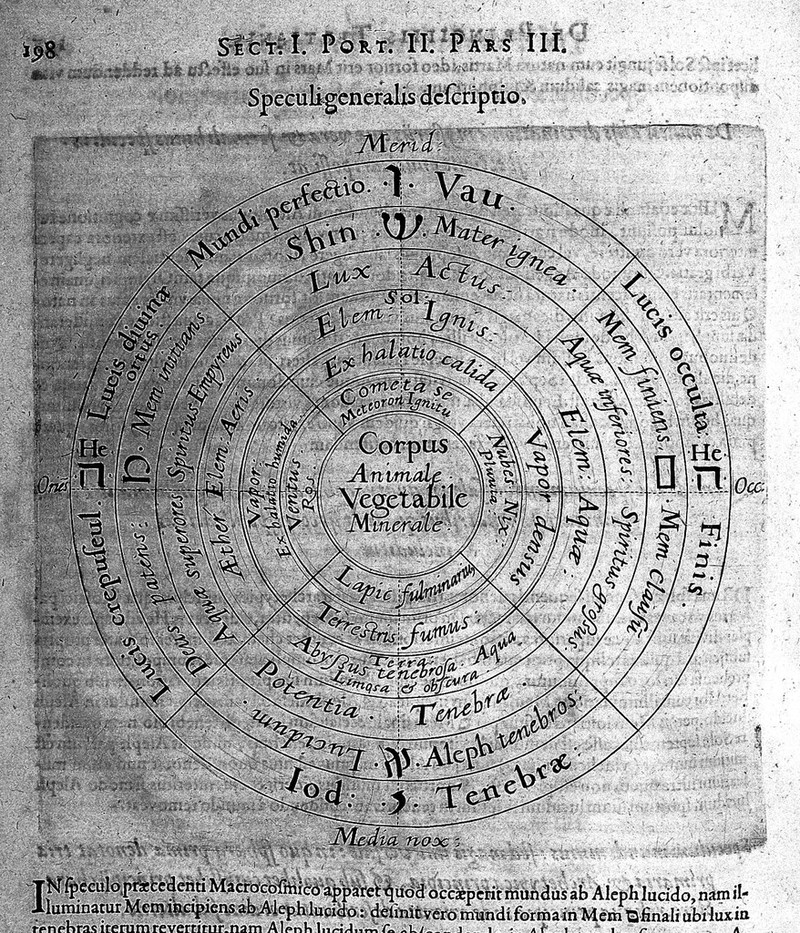 198
SECT. I. PORT. II. PARS III.
Speculi generalis descriptio.
Merid:
Mundi perfectio. ו Vau.
Shin ש Mater ignea.
Lux Actus.
Sol
Elem: Ignis:
Exhalatio calida
Cometa se
Meteoron Ignitu
Lucis divinæ
ortus.
Mem initians
Spiritus Empyreus
Elem: Aeris
Vapor
Exhalatio humida
Ventus
Ros
He
ה
Ories
מ
Æther
Aquæ superiores
Deus patens:
Lucis crepuscul.
Lucis occulta.
Mem finiens
Aquæ inferiores:
Elem: Aquæ:
Vapor densus
Nubes Nix
Pluvia
He
ה
Occ
ם
Spiritus grossus
Mem clausū
Finis.
Corpus
Animale
Vegetabile
Minerale
Lapis fulminatus
Terrestris fumus:
Terra
Abyssus tenebrosa. Aqua
Limosa & obscura
Potentia. Tenebræ.
Lucidum. א Aleph tenebros:
Iod: י Tenebræ
Media nox:
IN speculo præcedenti Macrocosmico apparet quod occæperit mundus ab Aleph lucido, nam il-
luminatur Mem incipiens ab Aleph lucido: definit vero mundi forma in Mem ם finali ubi lux in
tenebras iterum revertitur, nam Aleph lucidum